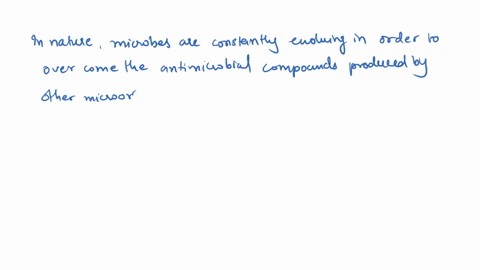 In nature, microbes are constantly evolving in order to
over come the antimicrobial compounds produced by
other microor